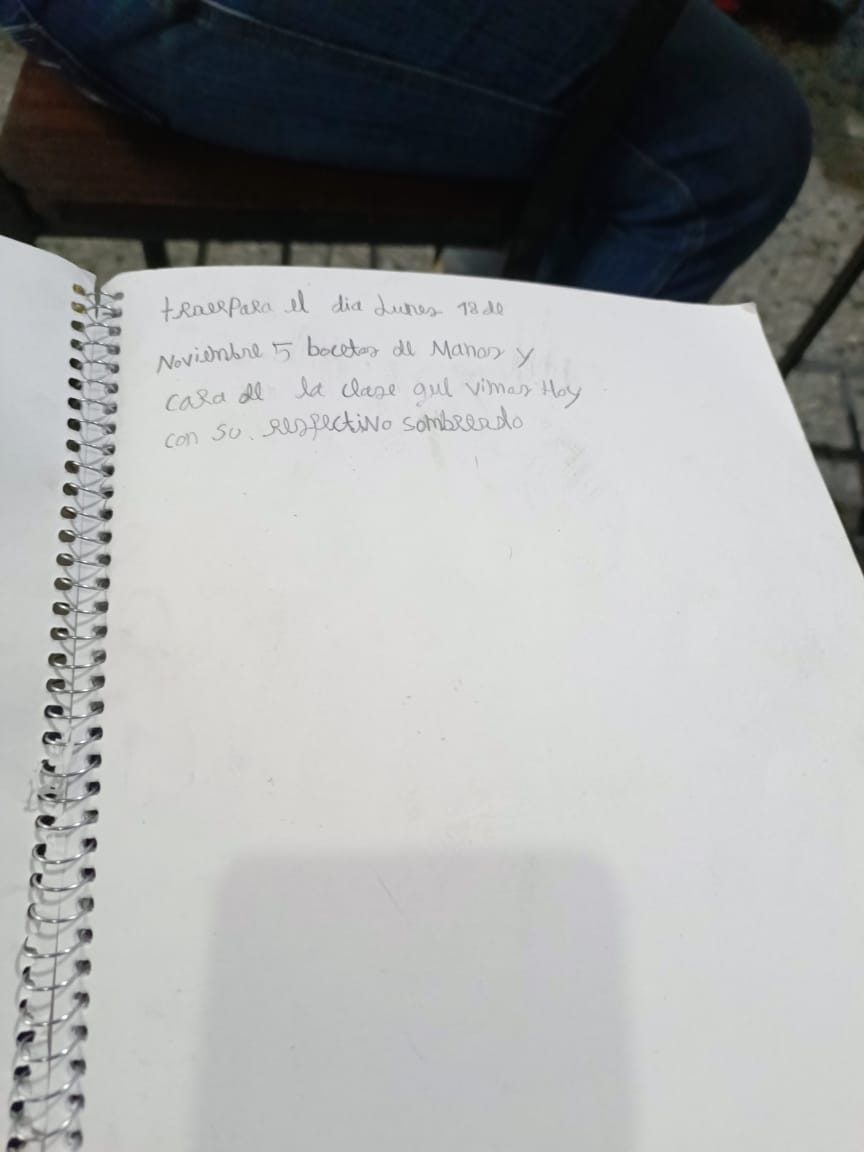 traerpara el dia Lunes 18 de
Noviembre 5 bocetos de Manos y
cara de la clase que vimos Hoy
con su respectivo sombreado